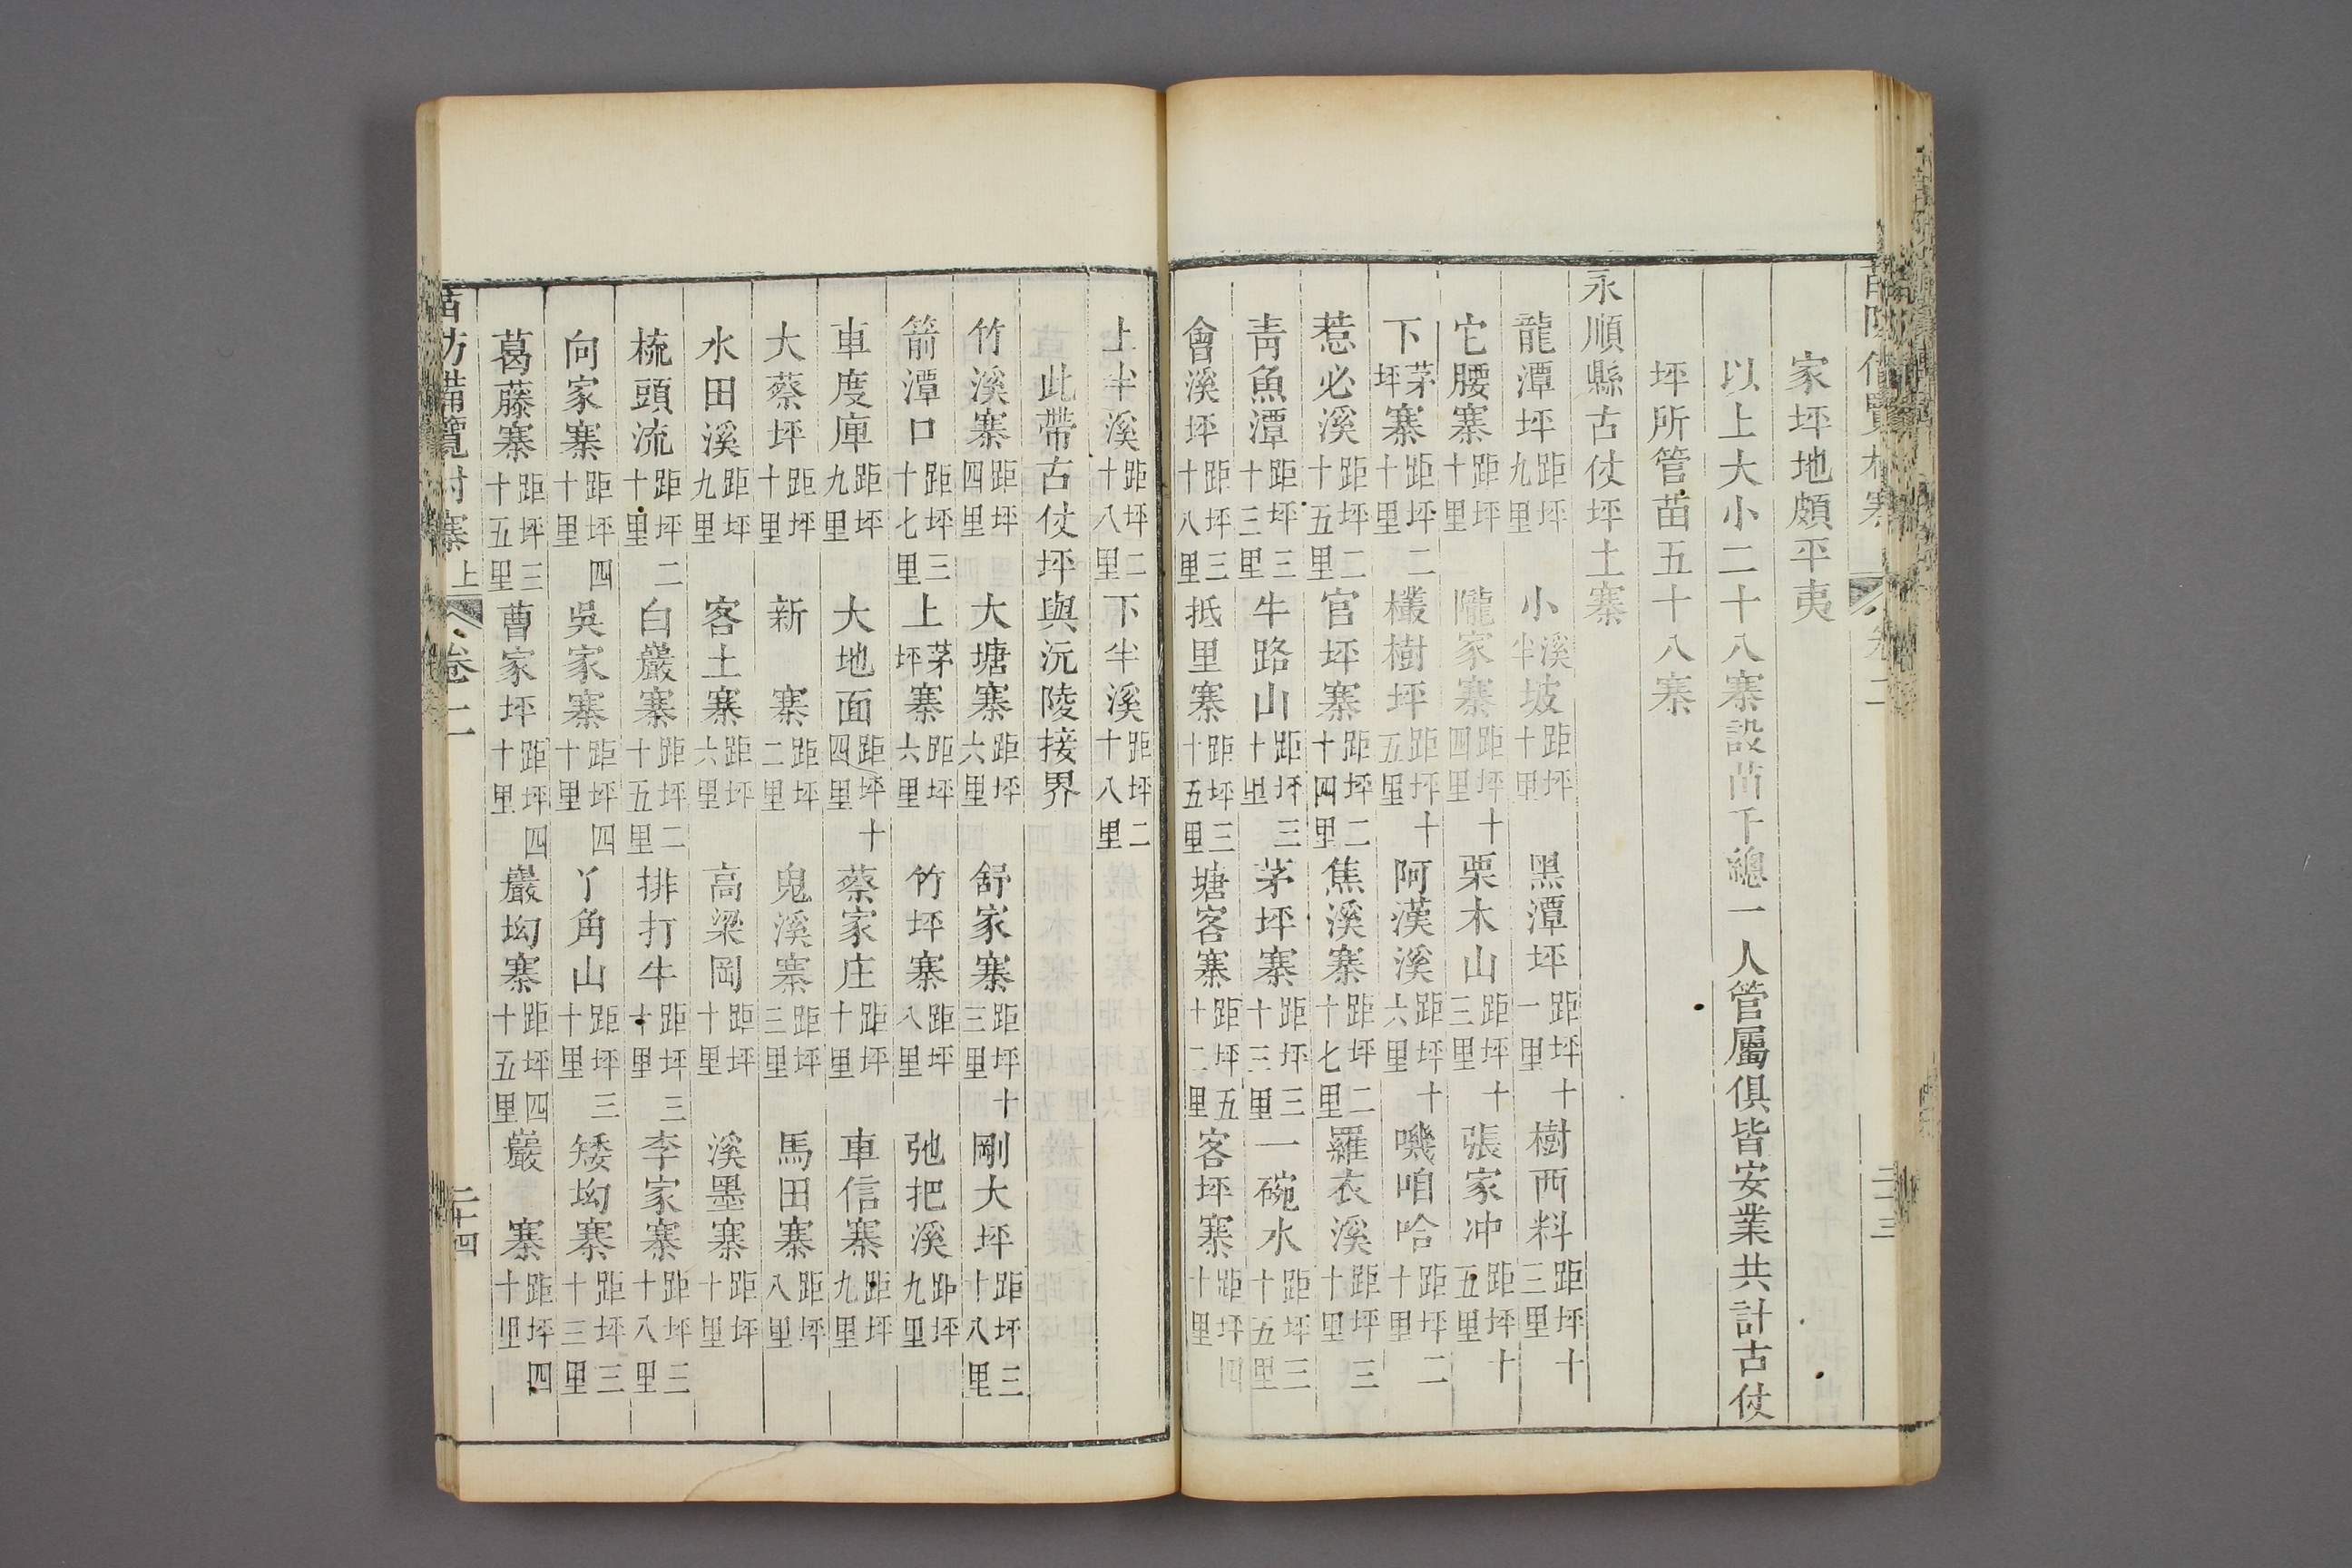 苗防備覽村寨 卷二 二十三
家坪地頗平夷
以上大小二十八寨設苗千總一人管屬俱皆安業共計古仗
坪所管苗五十八寨
永順縣古仗坪土寨
龍潭坪距坪九里 小溪半坡距坪十里 黑潭坪距坪十一里 樹西料距坪十三里
它腰寨距坪十里 隴家寨距坪十四里 栗木山距坪十三里 張家冲距坪十五里
下茅坪寨距坪二十里 欉樹坪距坪十五里 阿漢溪距坪十六里 嘰咱哈距坪二十里
惹必溪距坪二十五里 官坪寨距坪二十四里 焦溪寨距坪二十七里 羅衣溪距坪三十里
靑魚潭距坪三十三里 牛路山距坪三十里 茅坪寨距坪三十三里 一碗水距坪三十五里
會溪坪距坪三十八里 抵里寨距坪三十五里 塘客寨距坪五十二里 客坪寨距坪四十里
上半溪距坪二十八里 下半溪距坪二十八里
此帶古仗坪與沅陵接界
竹溪寨距坪四里 大塘寨距坪六里 舒家寨距坪十三里 剛大坪距坪三十八里
箭潭口距坪三十七里 上茅坪寨距坪六里 竹坪寨距坪八里 弛把溪距坪九里
車度庫距坪九里 大地面距坪十四里 蔡家庄距坪十里 車信寨距坪九里
大蔡坪距坪十里 新寨距坪二里 鬼溪寨距坪三里 馬田寨距坪八里
水田溪距坪九里 客土寨距坪六里 高梁岡距坪十里 溪墨寨距坪十里
梳頭流距坪二十里 白巖寨距坪二十五里 排打牛距坪三十里 李家寨距坪三十八里
向家寨距坪四十里 吳家寨距坪四十里 丫角山距坪三十里 矮坳寨距坪三十三里
葛藤寨距坪三十五里 曹家坪距坪四十里 巖坳寨距坪四十五里 巖寨距坪四十里
苗防備覽村寨上 卷二 二十四